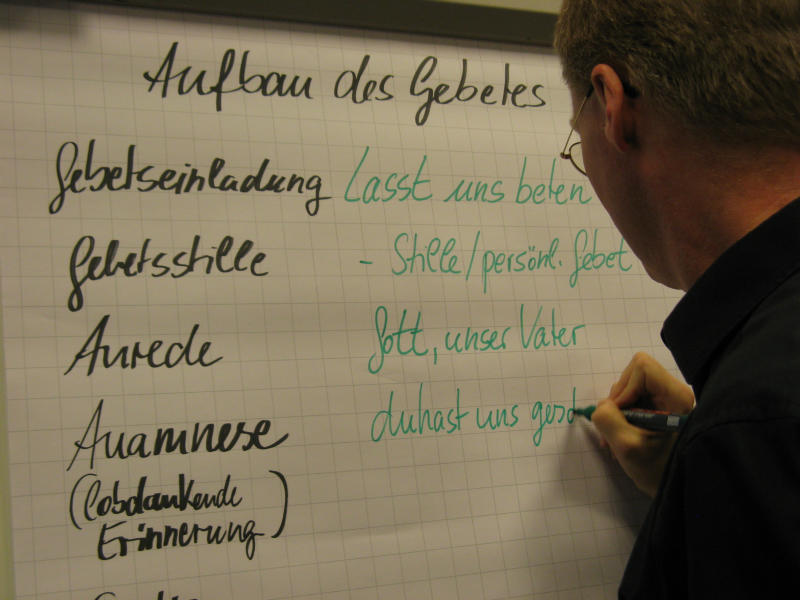 Aufbau des Gebetes
Gebetseinladung Lasst uns beten
Gebetsstille - Stille/persönl. Gebet
Anrede Gott, unser Vater
Anamnese du hast uns
(lobdankende
Erinnerung)